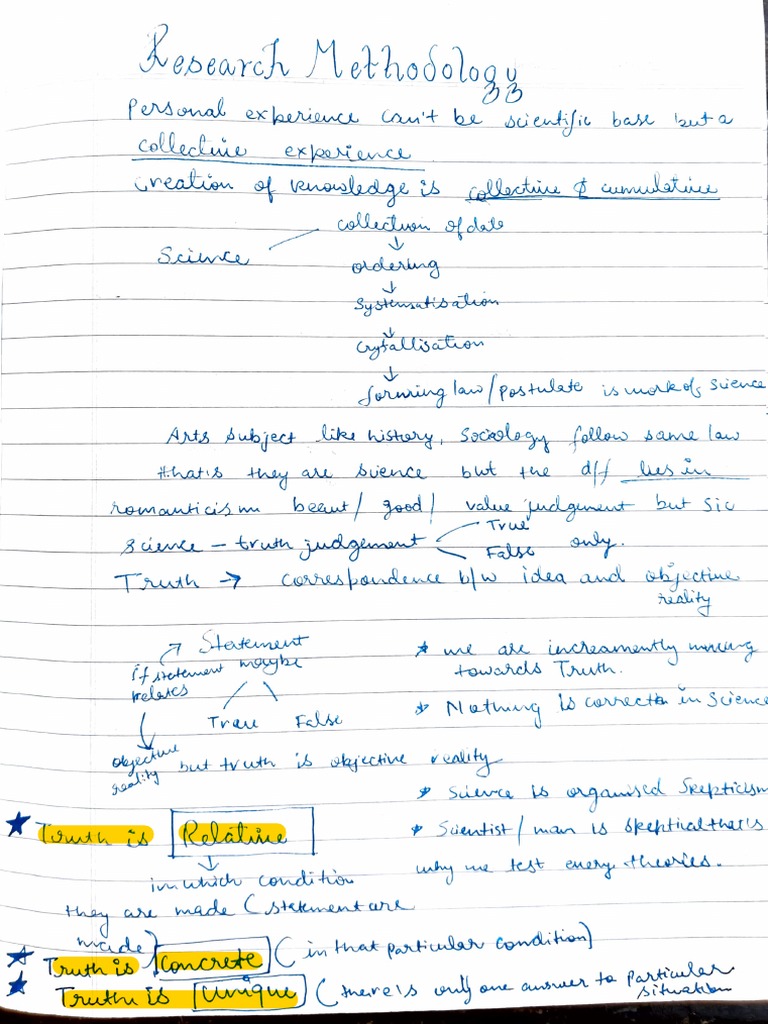 Research Methodology
Personal experience can't be scientific base but a
collective experience
creation of knowledge is collective & cumulative
collection of data
↓
Science
ordering
↓
Systematisation
↓
Crytallisation
↓
forming law/postulate is work of science
Arts subject like history, Sociology follow same law
that's they are science but the diff lies in
romanticism beaut/ good/ value judgement but Sic
science - truth judgement True False only.
Truth → correspondence b/w idea and objective
reality
Statement
maybe
if statement
relates
True False
objective
reality but truth is objective reality
* we are increamently moving
towards Truth.
* Nothing is correct in Science
* Science is organised Skepticism
* Scientist/man is skeptical that's
why we test every theories.
★ Truth is Relative
↓
in which condition
they are made (statement are
made)
★ Truth is Concrete (in that particular condition)
★ Truth is Unique (there's only one answer to particular
situation